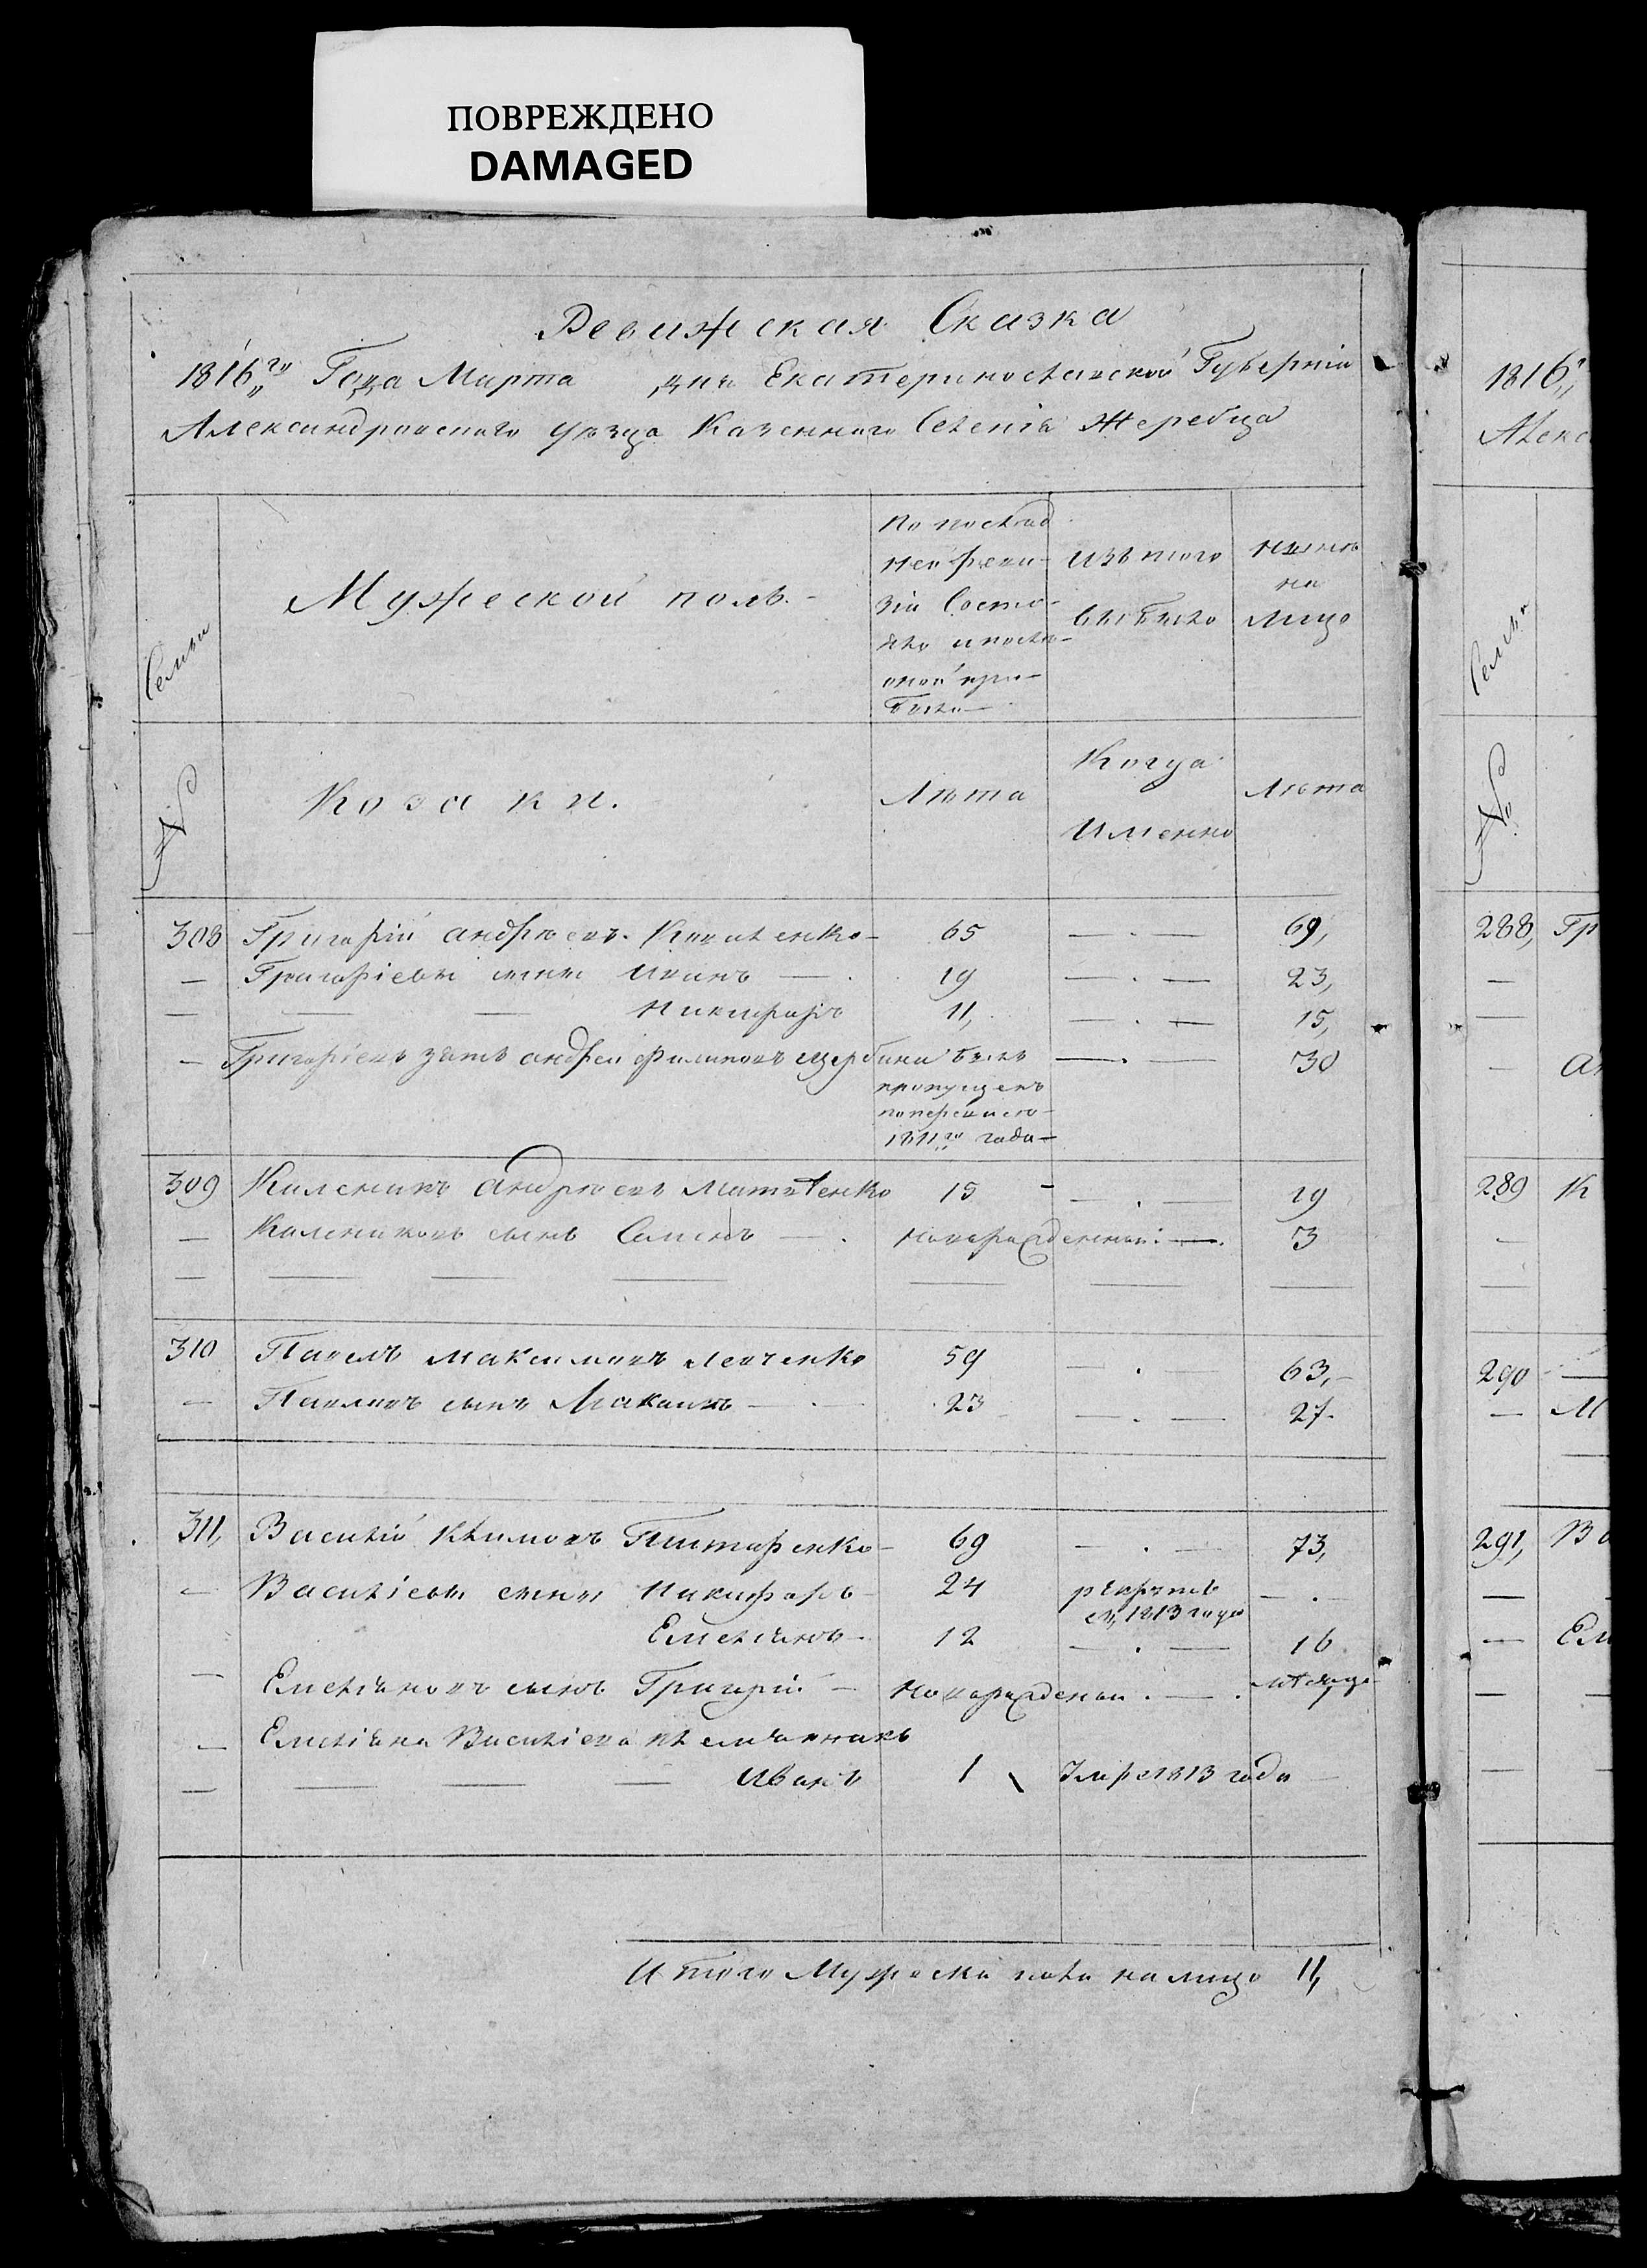 ПОВРЕЖДЕНО
DAMAGED
Ревижская Сказка
1816го Года Марта дня Екатеринославской Губернiи
Александровского уѣзда Казенного Селенiя Жеребца
Семьи
Мужеской полъ.
По послѣд
ней реви-
зiи Состо-
яло и после
оной при-
было
Изъ того
выбыло
Нынѣ
на
Лицо
№
Козаки.
Лѣта
Когда
Именно
Лѣта
308 Григорiй Андрѣевъ 65 — . — 69,
— Григорiевы сыны Иванъ — . 19 — . — 23,
— — — Никифоръ 11, — . — 15,
— Григорiевъ зять Андрей Филиповъ Щербина былъ — . — 30
пропущенъ
1811го года —
309 Каленикъ Андрѣевъ 15 — . — 19
— Калениковъ сынъ Семенъ — . Новорожденный . — . 3
310 Павелъ Максимовъ Левченко 59 — . 63,
— Павловъ сынъ Максимъ — . — 23 — . — 27.
311, Василiй Климовъ 69 — . — 73,
— Василiевы сыны Никифоръ 24 рекрутъ — . —
съ 1813 года
Емелiянъ — 12 — . — 16
— Емелiяновъ сынъ Григорiй — Новорожденный . — .
— Емелiяна Василiева племянникъ
— — — — Иванъ 1 Умре 1813 года
Итого Мужеска пола на лицо 11,
1816
Алекс
Семьи
№
288, Гр
—
—
— Ан
289 К
—
—
290 —
— М
291, Ва
—
— Ем
—
—